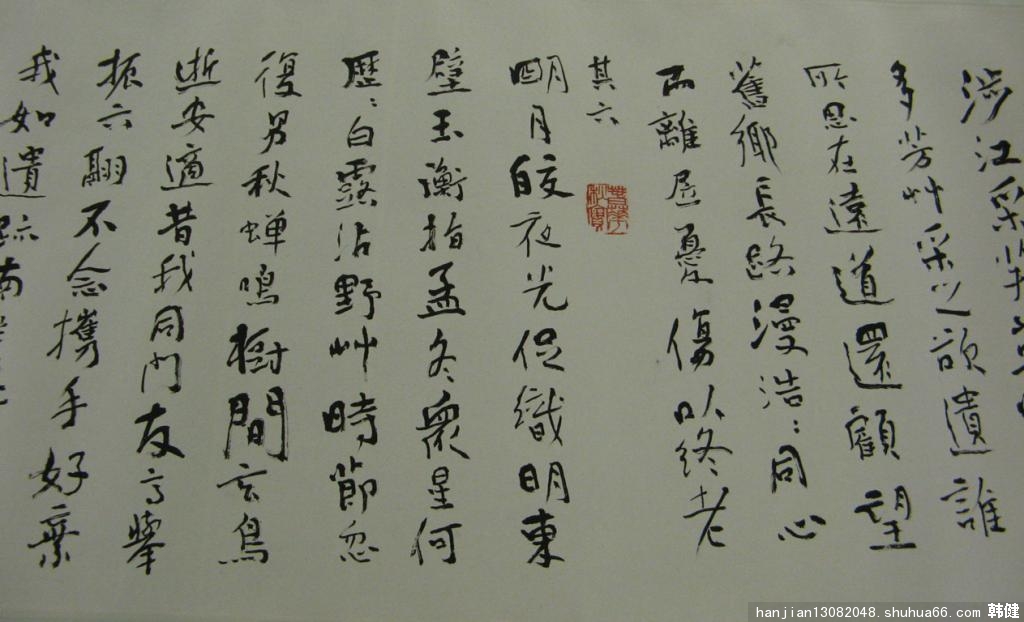 涉江采
多芳艸采之欲遺誰
所思在遠道還顧望
舊鄉長路漫浩:同心
而離居憂傷以終老
其六
明月皎夜光促織明東
壁玉衡指孟冬衆星何
歷:白露沾野艸時節忽
復易秋蟬鳴樹間玄鳥
逝安適昔我同門友高舉
振六翮不念攜手好棄
我如遺跡南
hanjian13082048.shuhua66.com 韩健